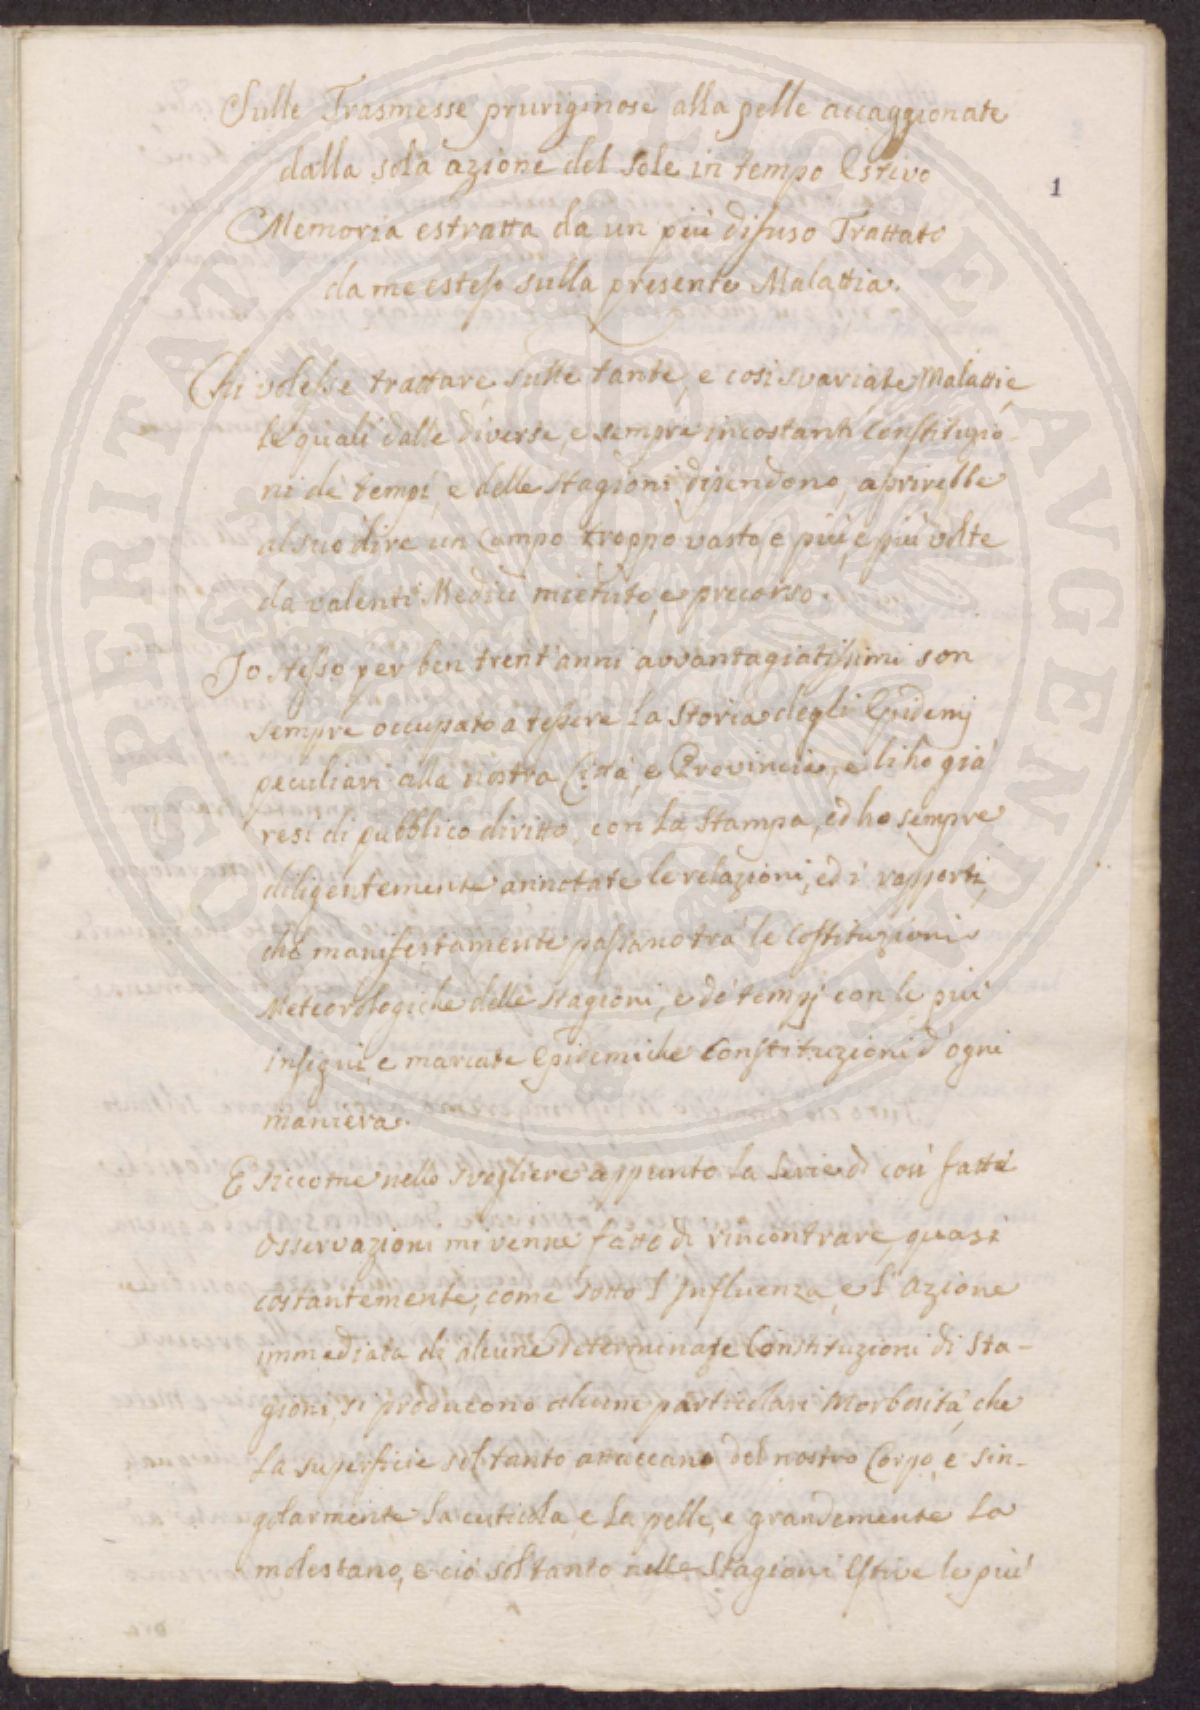 Sulle Trasmesse pruriginose alla pelle accaggionate
dalla sola azione del Sole in tempo Estivo
1
Memoria estratta da un più difuso Trattato
da me esteso sulla presente Malattia.
Chi volesse trattare, sulle tante, e così svariate Malattie
le quali dalle diverse, e sempre incostanti Constituzio-
ni de' tempi, e delle Stagioni dipendono, aprirebbe
al suo dire un Campo troppo vasto, e più, e più volte
da valenti Medici mietuto, e precorso.
Io stesso per ben trent'anni avvantagiatissimi son
sempre occupato a tessere la Storia degli Epidemj
peculiari alla nostra Città, e Provincia, e li ho già
resi di pubblico diritto con la Stampa, ed ho sempre
diligentemente annotate le relazioni, ed i rapporti,
che manifestamente passano trà le Costituzioni
Meteorologiche delle Stagioni, e de' tempj con le più
insigni, e marcate Epidemiche Constituzioni d'ogni
maniera.
E siccome nello svogliere appunto la Serie di così fatte
Osservazioni mi venne fatto di rincontrare, quasi
costantemente, come sotto l'Influenza, e l'Azione
immediata di alcune determinate Constituzioni di Sta-
gioni, si producono alcune particolari Morbosità, che
la superficie soltanto attaccano del nostro Corpo, e sin-
golarmente la cuticola, e la pelle, e grandemente la
molestano, e ciò soltanto nelle Stagioni Estive le più
SPERITATI PUBLICAE AVGENDAE